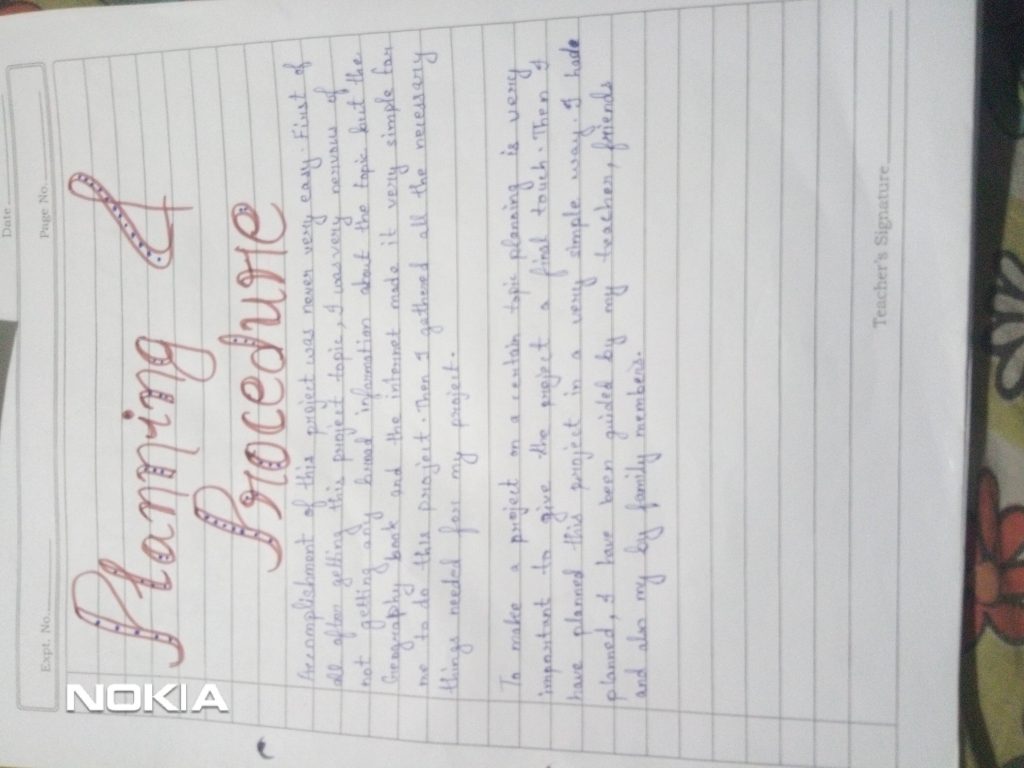 Date
Expt. No.
Page No.
Planning &
Procedure
Accomplishment of this project was never very easy. First of
all after getting this project topic, I was very nervous of
not getting any broad information about the topic but the
Geography book and the internet made it very simple for
me to do this project. Then I gathered all the necessary
things needed for my project.
To make a project on a certain topic planning is very
important to give the project a final touch. Then I
have planned this project in a very simple way. I hade
planned, I have been guided by my teacher, friends
and also my by family members.
Teacher's Signature
NOKIA